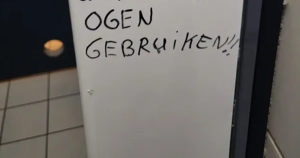 OGEN
GEBRUIKEN!!